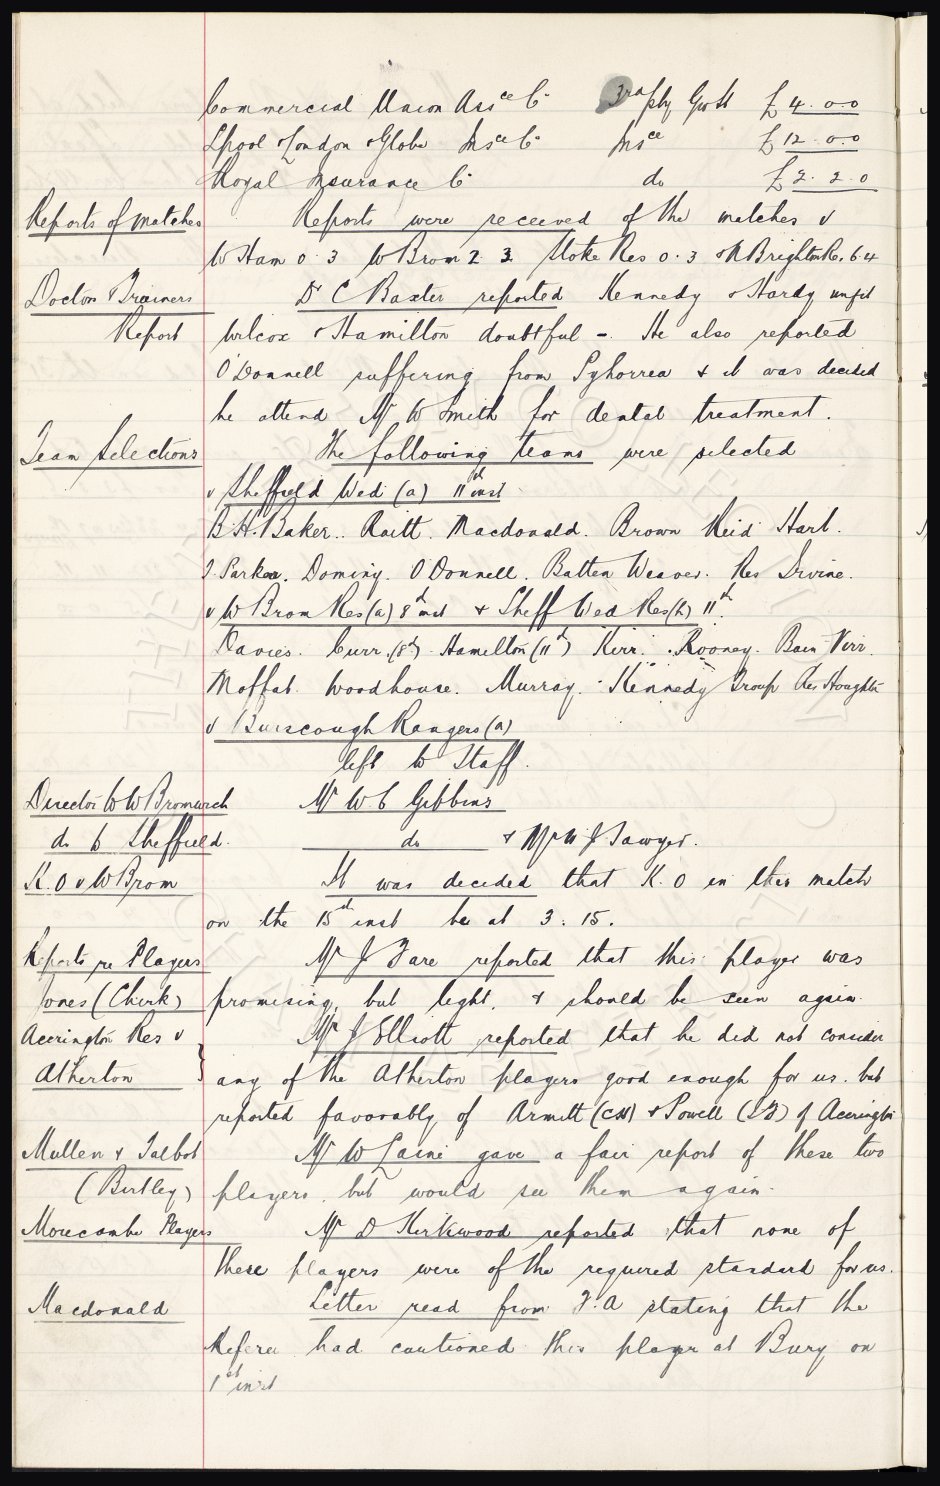 Commercial Union Assce Co 3rd pty Gwth £4.0.0
Lpool London & Globe Insce Co Insce £12.0.0
Royal Insurance Co do £2.2.0
Reports of Matches Reports were received of the matches v
W Ham 0.3 W Brom 2.3. Stoke Res 0.3 & N Brighton Res 6.4
Doctors & Trainers Dr C Baxter reported Kennedy & Hardy unfit
Report Wilcox & Hamilton doubtful - He also reported
O'Donnell suffering from Pyhorrea & it was decided
he attend Mr W Smith for dental treatment.
Team Selections The following teams were selected
v Sheffield Wed (a) 11th inst
B.H. Baker. Raitt. Macdonald. Brown Reid Hart.
F. Parker. Dominy. O'Donnell. Batten Weaver. Res Irvine.
v W Brom Res (a) 8th inst & Sheff Wed Res (h) 11th.
Davies. Curr (8th) Hamilton (11th) Kerr. Rooney. Bain Virr.
Moffat. Woodhouse. Murray. Kennedy Troup Res Houghton
v Burscough Rangers (a)
left to Staff.
Director to W Bromwich Mr W C Gibbins
do to Sheffield. do & Mr W J Sawyer.
K.O v W Brom It was decided that K.O in this match
on the 15th inst be at 3.15.
Reports re Players Mr J Fare reported that this player was
Jones (Chirk) promising, but light, & should be seen again.
Accrington Res v Mr J Elliott reported that he did not consider
Atherton } any of the Atherton players good enough for us. but
reported favorably of Armitt (CH) & Powell (LB) of Accrington
Mullen & Talbot Mr W Laine gave a fair report of these two
(Birtley) players, but would see them again.
Morecambe Players Mr D Kirkwood reported that none of
these players were of the required standard for us.
Macdonald Letter read from F.A stating that the
Referee had cautioned this player at Bury on
1st inst